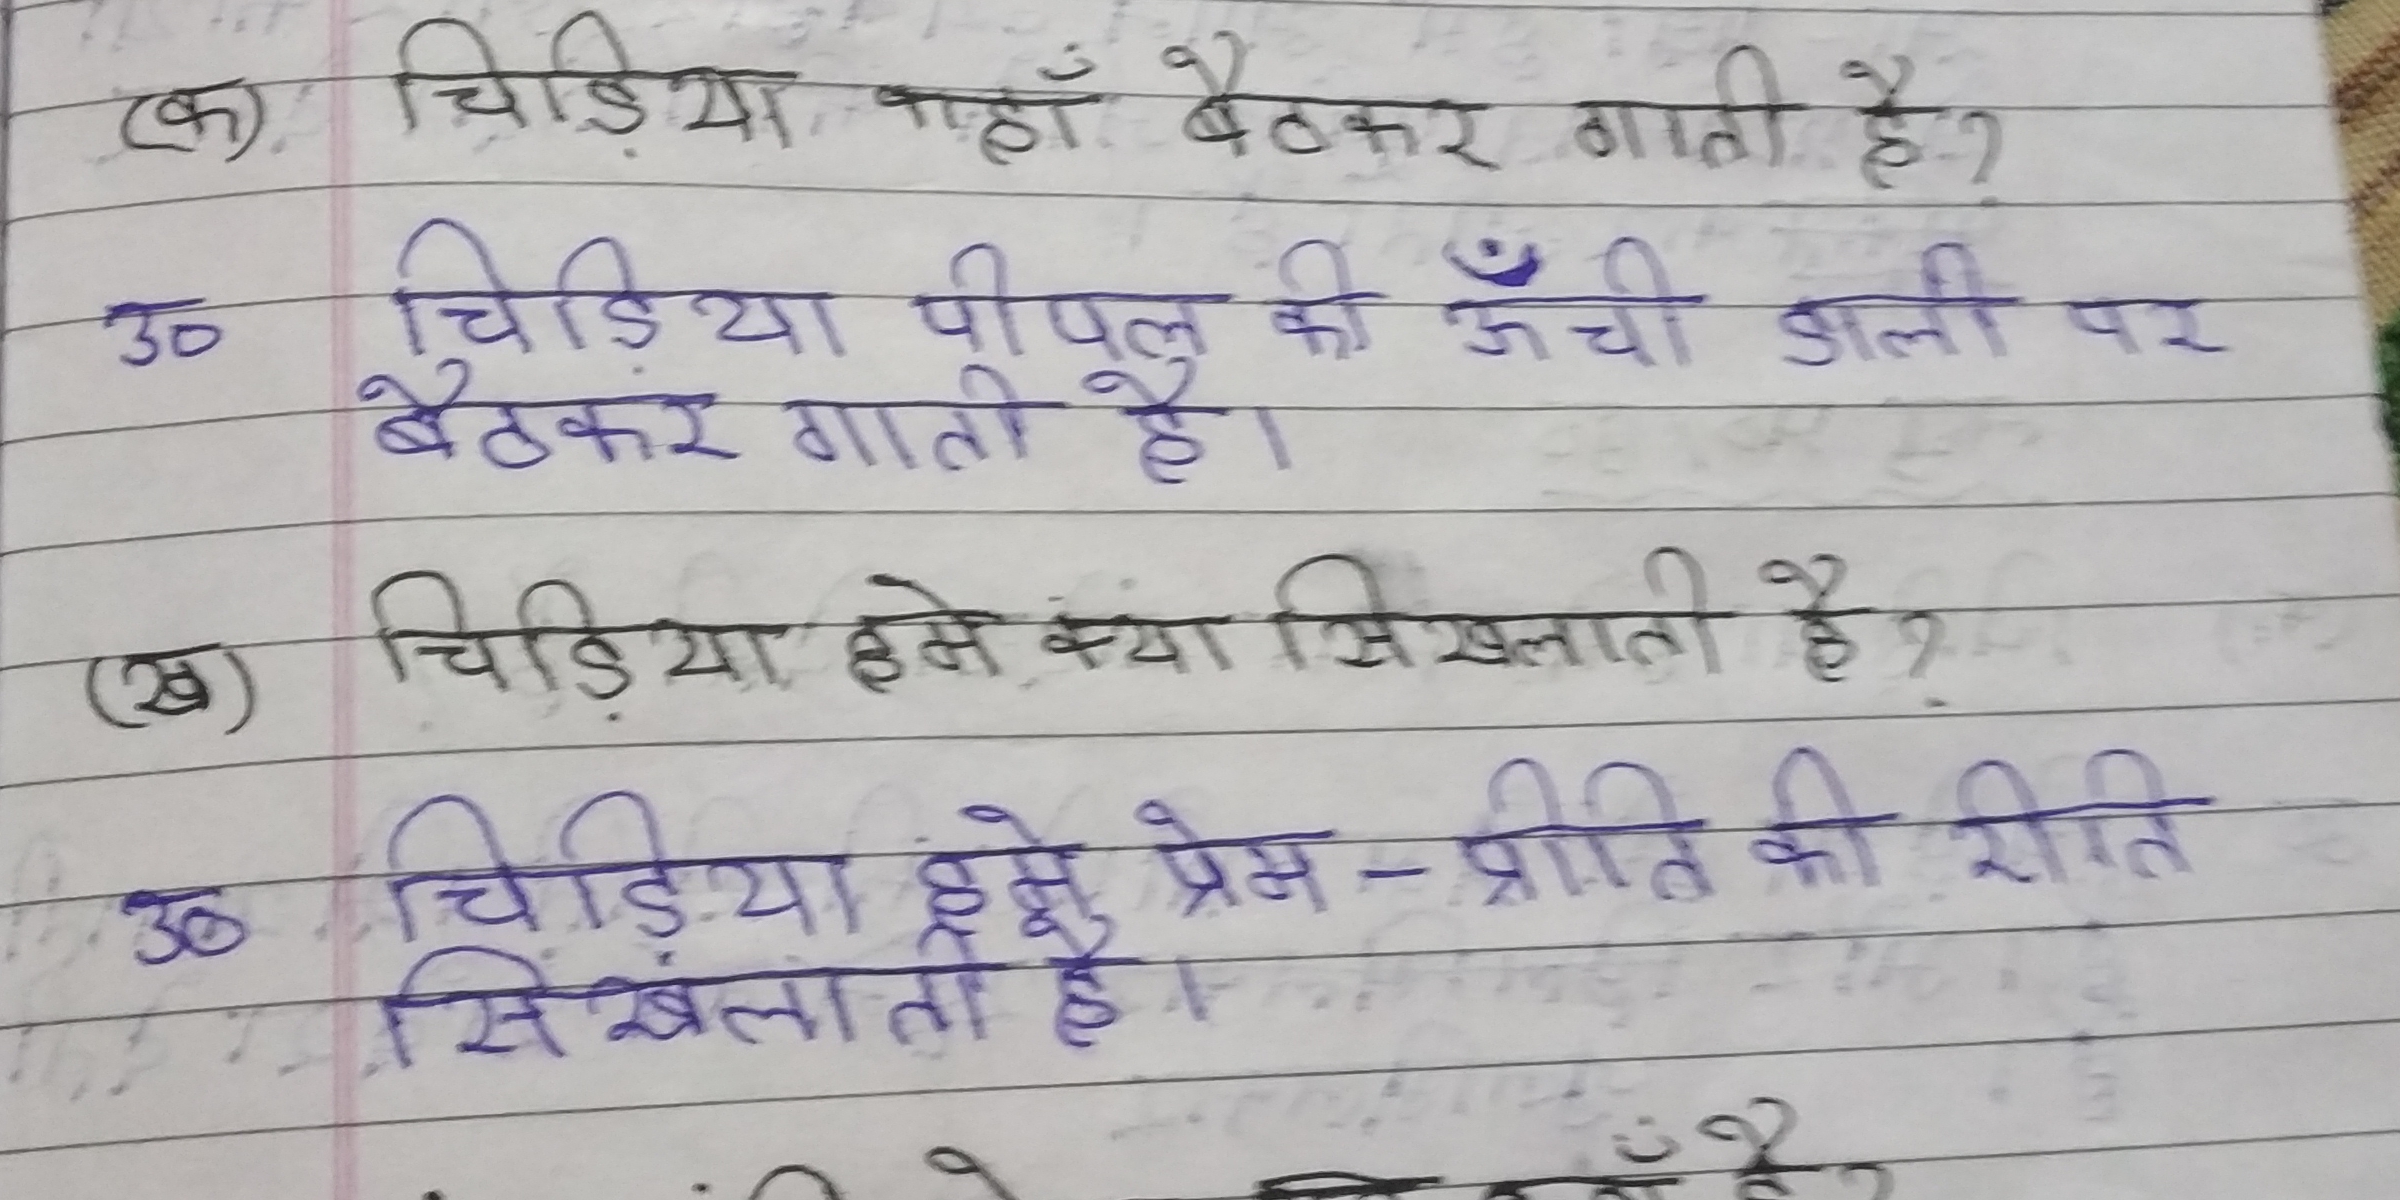 (क) चिड़िया कहाँ बैठकर गाती है?
उ० चिड़िया पीपल की ऊँची डाली पर
बैठकर गाती है।
(ख) चिड़िया हमे क्या सिखलाती है?
उ० चिड़िया हमे प्रेम - प्रीति की रीति
सिखलाती है।